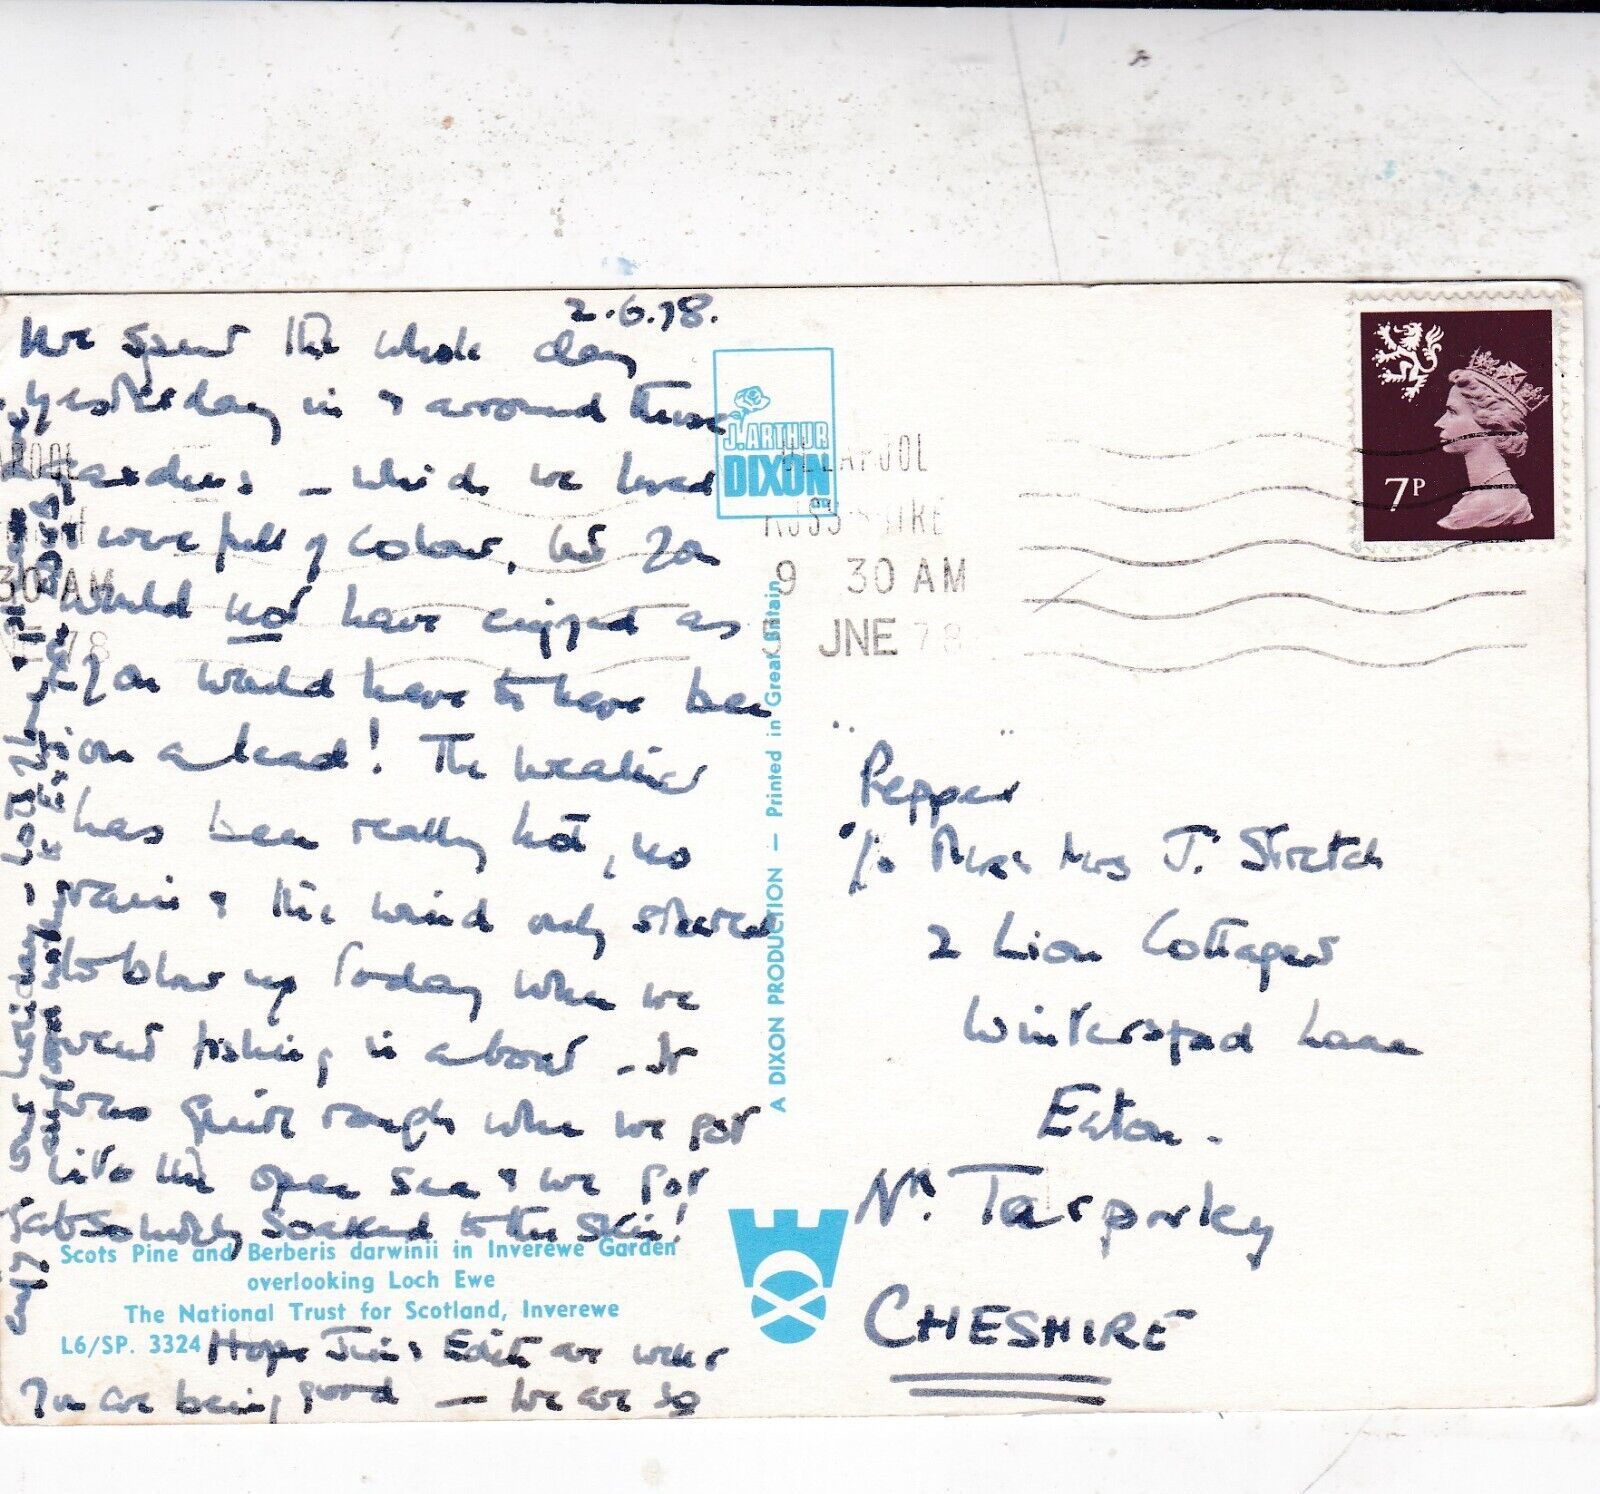 2.6.78.
We spent the whole day
yesterday in & arround these
gardens - which we loved
& were full of colour, but you
would not have enjoyed as
you would have to have been
on a lead! The weather
has been really hot, no
rain & the wind only started
to blow up today when we
went fishing in a boat - it
was quite rough when we got
into the open sea & we got
absolutely soaked to the skin!
Scots Pine and Berberis darwinii in Inverewe Garden
overlooking Loch Ewe
The National Trust for Scotland, Inverewe
L6/SP. 3324
Hope Jim & Edith are well &
you are being good - we are so
enjoying our holiday
J. ARTHUR
DIXON
A DIXON PRODUCTION — Printed in Great Britain
ULLAPOOL
ROSS-SHIRE
9 30 AM
5 JNE 78
7P
"Pepper"
c/o Mr & Mrs J. Stretch
2 Lion Cottages
Winterford Lane
Eaton.
Nr. Tarporley
CHESHIRE